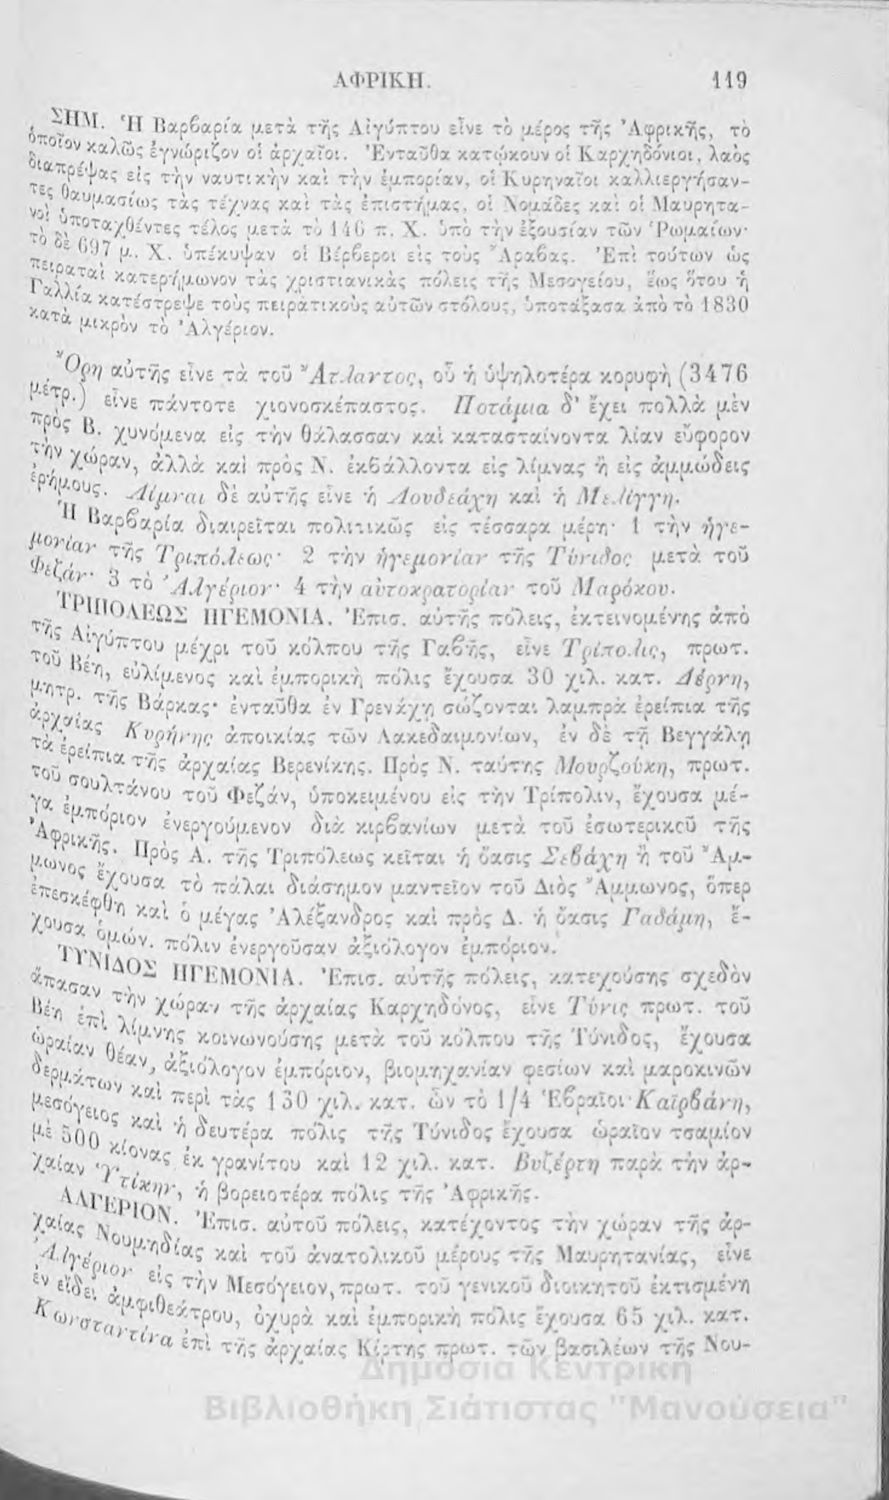 ΑΦΡΙΚΗ. 119
ΣΗΜ. Ἡ Βαρβαρία μετὰ τῆς Αἰγύπτου εἶνε τὸ μέρος τῆς Ἀφρικῆς, τὸ
ὁποῖον καλῶς ἐγνώριζον οἱ ἀρχαῖοι. Ἐνταῦθα κατῴκουν οἱ Καρχηδόνιοι, λαὸς
διαπρέψας εἰς τὴν ναυτικὴν καὶ τὴν ἐμπορίαν, οἱ Κυρηναῖοι καλλιεργήσαν-
τες θαυμασίως τὰς τέχνας καὶ τὰς ἐπιστήμας, οἱ Νομάδες καὶ οἱ Μαυρητα-
νοὶ ὑποταχθέντες τέλος μετὰ τὸ 146 π. Χ. ὑπὸ τὴν ἐξουσίαν τῶν Ῥωμαίων·
τὸ δὲ 697 μ. Χ. ὑπέκυψαν οἱ Βέρβεροι εἰς τοὺς Ἄραβας. Ἐπὶ τούτων ὡς
πειραταὶ κατερήμωνον τὰς χριστιανικὰς πόλεις τῆς Μεσογείου, ἕως ὅτου ἡ
Γαλλία κατέστρεψε τοὺς πειρατικοὺς αὐτῶν στόλους, ὑποτάξασα ἀπὸ τὸ 1830
κατὰ μικρὸν τὸ Ἀλγέριον.
Ὄρη αὐτῆς εἶνε τὰ τοῦ Ἄτλαντος, οὗ ἡ ὑψηλοτέρα κορυφὴ (3476
μέτρ.) εἶνε πάντοτε χιονοσκέπαστος. Ποτάμια δ' ἔχει πολλὰ μὲν
πρὸς Β. χυνόμενα εἰς τὴν θάλασσαν καὶ κατασταίνοντα λίαν εὔφορον
τὴν χώραν, ἀλλὰ καὶ πρὸς Ν. ἐκβάλλοντα εἰς λίμνας ἢ εἰς ἀμμώδεις
ἐρήμους. Λίμναι δὲ αὐτῆς εἶνε ἡ Λουδεάχη καὶ ἡ Μελίγγη.
Ἡ Βαρβαρία διαιρεῖται πολιτικῶς εἰς τέσσαρα μέρη· 1 τὴν ἡγε-
μονίαν τῆς Τριπόλεως· 2 τὴν ἡγεμονίαν τῆς Τύνιδος μετὰ τοῦ
Φεζάν· 3 τὸ Ἀλγέριον· 4 τὴν αὐτοκρατορίαν τοῦ Μαρόκου.
ΤΡΙΠΟΛΕΩΣ ΗΓΕΜΟΝΙΑ. Ἐπισ. αὐτῆς πόλεις, ἐκτεινομένης ἀπὸ
τῆς Αἰγύπτου μέχρι τοῦ κόλπου τῆς Γαβῆς, εἶνε Τρίπολις, πρωτ.
τοῦ Βέη, εὐλίμενος καὶ ἐμπορικὴ πόλις ἔχουσα 30 χιλ. κατ. Δέρνη,
μητρ. τῆς Βάρκας· ἐνταῦθα ἐν Γρενάχῃ σώζονται λαμπρὰ ἐρείπια τῆς
ἀρχαίας Κυρήνης ἀποικίας τῶν Λακεδαιμονίων, ἐν δὲ τῇ Βεγγάλῃ
τὰ ἐρείπια τῆς ἀρχαίας Βερενίκης. Πρὸς Ν. ταύτης Μουρζούκη, πρωτ.
τοῦ σουλτάνου τοῦ Φεζάν, ὑποκειμένου εἰς τὴν Τρίπολιν, ἔχουσα μέ-
γα ἐμπόριον ἐνεργούμενον διὰ κιρβανίων μετὰ τοῦ ἐσωτερικοῦ τῆς
Ἀφρικῆς. Πρὸς Α. τῆς Τριπόλεως κεῖται ἡ ὄασις Σεβάχη ἢ τοῦ Ἄμ-
μωνος ἔχουσα τὸ πάλαι διάσημον μαντεῖον τοῦ Διὸς Ἄμμωνος, ὅπερ
ἐπεσκέφθη καὶ ὁ μέγας Ἀλέξανδρος καὶ πρὸς Δ. ἡ ὄασις Γαδάμη, ἔ-
χουσα ὁμών. πόλιν ἐνεργοῦσαν ἀξιόλογον ἐμπόριον.
ΤΥΝΙΔΟΣ ΗΓΕΜΟΝΙΑ. Ἐπισ. αὐτῆς πόλεις, κατεχούσης σχεδὸν
ἅπασαν τὴν χώραν τῆς ἀρχαίας Καρχηδόνος, εἶνε Τύνις πρωτ. τοῦ
Βέη ἐπὶ λίμνης κοινωνούσης μετὰ τοῦ κόλπου τῆς Τύνιδος, ἔχουσα
ὡραίαν θέαν, ἀξιόλογον ἐμπόριον, βιομηχανίαν φεσίων καὶ μαροκινῶν
δερμάτων καὶ περὶ τὰς 130 χιλ. κατ. ὧν τὸ 1/4 Ἑβραῖοι· Καϊρβάνη,
μεσόγειος καὶ ἡ δευτέρα πόλις τῆς Τύνιδος ἔχουσα ὡραῖον τσαμίον
μὲ 500 κίονας ἐκ γρανίτου καὶ 12 χιλ. κατ. Βυζέρτη παρὰ τὴν ἀρ-
χαίαν Ὑτίκην, ἡ βορειοτέρα πόλις τῆς Ἀφρικῆς.
ΑΛΓΕΡΙΟΝ. Ἐπισ. αὐτοῦ πόλεις, κατέχοντος τὴν χώραν τῆς ἀρ-
χαίας Νουμηδίας καὶ τοῦ ἀνατολικοῦ μέρους τῆς Μαυρητανίας, εἶνε
Ἀλγέριον εἰς τὴν Μεσόγειον, πρωτ. τοῦ γενικοῦ διοικητοῦ ἐκτισμένη
ἐν εἴδει ἀμφιθεάτρου, ὀχυρὰ καὶ ἐμπορικὴ πόλις ἔχουσα 65 χιλ. κατ.
Κωνσταντίνα ἐπὶ τῆς ἀρχαίας Κίρτης πρωτ. τῶν βασιλέων τῆς Νου-
Δημόσια Κεντρική
Βιβλιοθήκη Σιάτιστας "Μανούσεια"